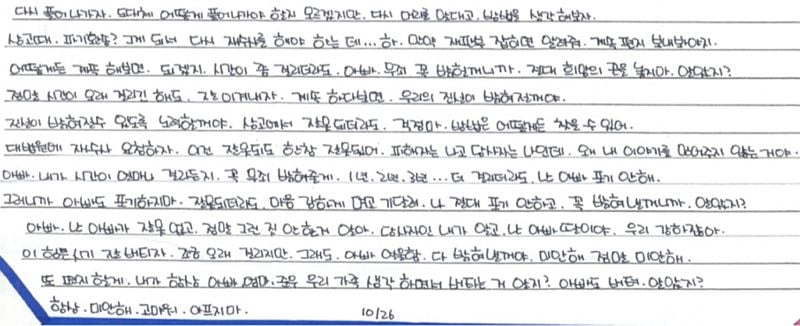 다시 풀어나가자. 도대체 어떻게 풀어나가야 할지 모르겠지만. 다시 머리를 맞대고, 방법을 생각해보자.
상고때. 파기환송? 그게 되서 다시 재수사를 해야 하는 데...하. 만약 재판부 잡히면 알려줘. 계속 편지 보내봐야지.
어떻게든 계속 해보면. 되겠지. 시간이 좀 걸리더라도. 아빠. 무죄 꼭 밝힐꺼니까. 절대 희망의 끈을 놓지마. 알았지?
정말 시간이 오래 걸리긴 해도. 잘 이겨내자. 계속 하다보면. 우리의 진심이 밝혀질꺼야.
진실이 밝혀질수 있도록 노력할꺼야. 상고에서 잘못되더라도. 걱정마. 방법은 어떻게든 찾을 수 있어.
대법원에 재수사 요청하자. 이건 잘못되도 한참 잘못되어. 피해자는 나고 당사자는 나인데. 왜 내 이야기를 믿어주지 않는 거야.
아빠. 내가 시간이 얼마나 걸리든지. 꼭 무죄 밝혀줄게. 1년. 2년. 3년... 더 걸리더라도. 난 아빠 포기 안해.
그러니까 아빠도 포기하지마. 잘못되더라도, 마음 강하게 먹고 기다려. 나 절대 포기 안하고. 꼭 밝혀낼꺼니까. 알았지?
아빠. 난 아빠가 잘못 없고. 정말 그런 짓 안한거 알아. 당사자인 내가 알고. 난 아빠 딸이야. 우리 강하잖아.
이 힘든시기 잘 버티자. 조금 오래 걸리지만. 그래도. 아빠 억울함. 다 밝혀낼꺼야. 미안해 정말 미안해.
또 편지 할게. 내가 항상 아빠 엄마. 우리 가족 생각 하면서 버티는 거 알지? 아빠도 버텨. 알았지?
항상. 미안해. 고마워. 아프지마. 10/26